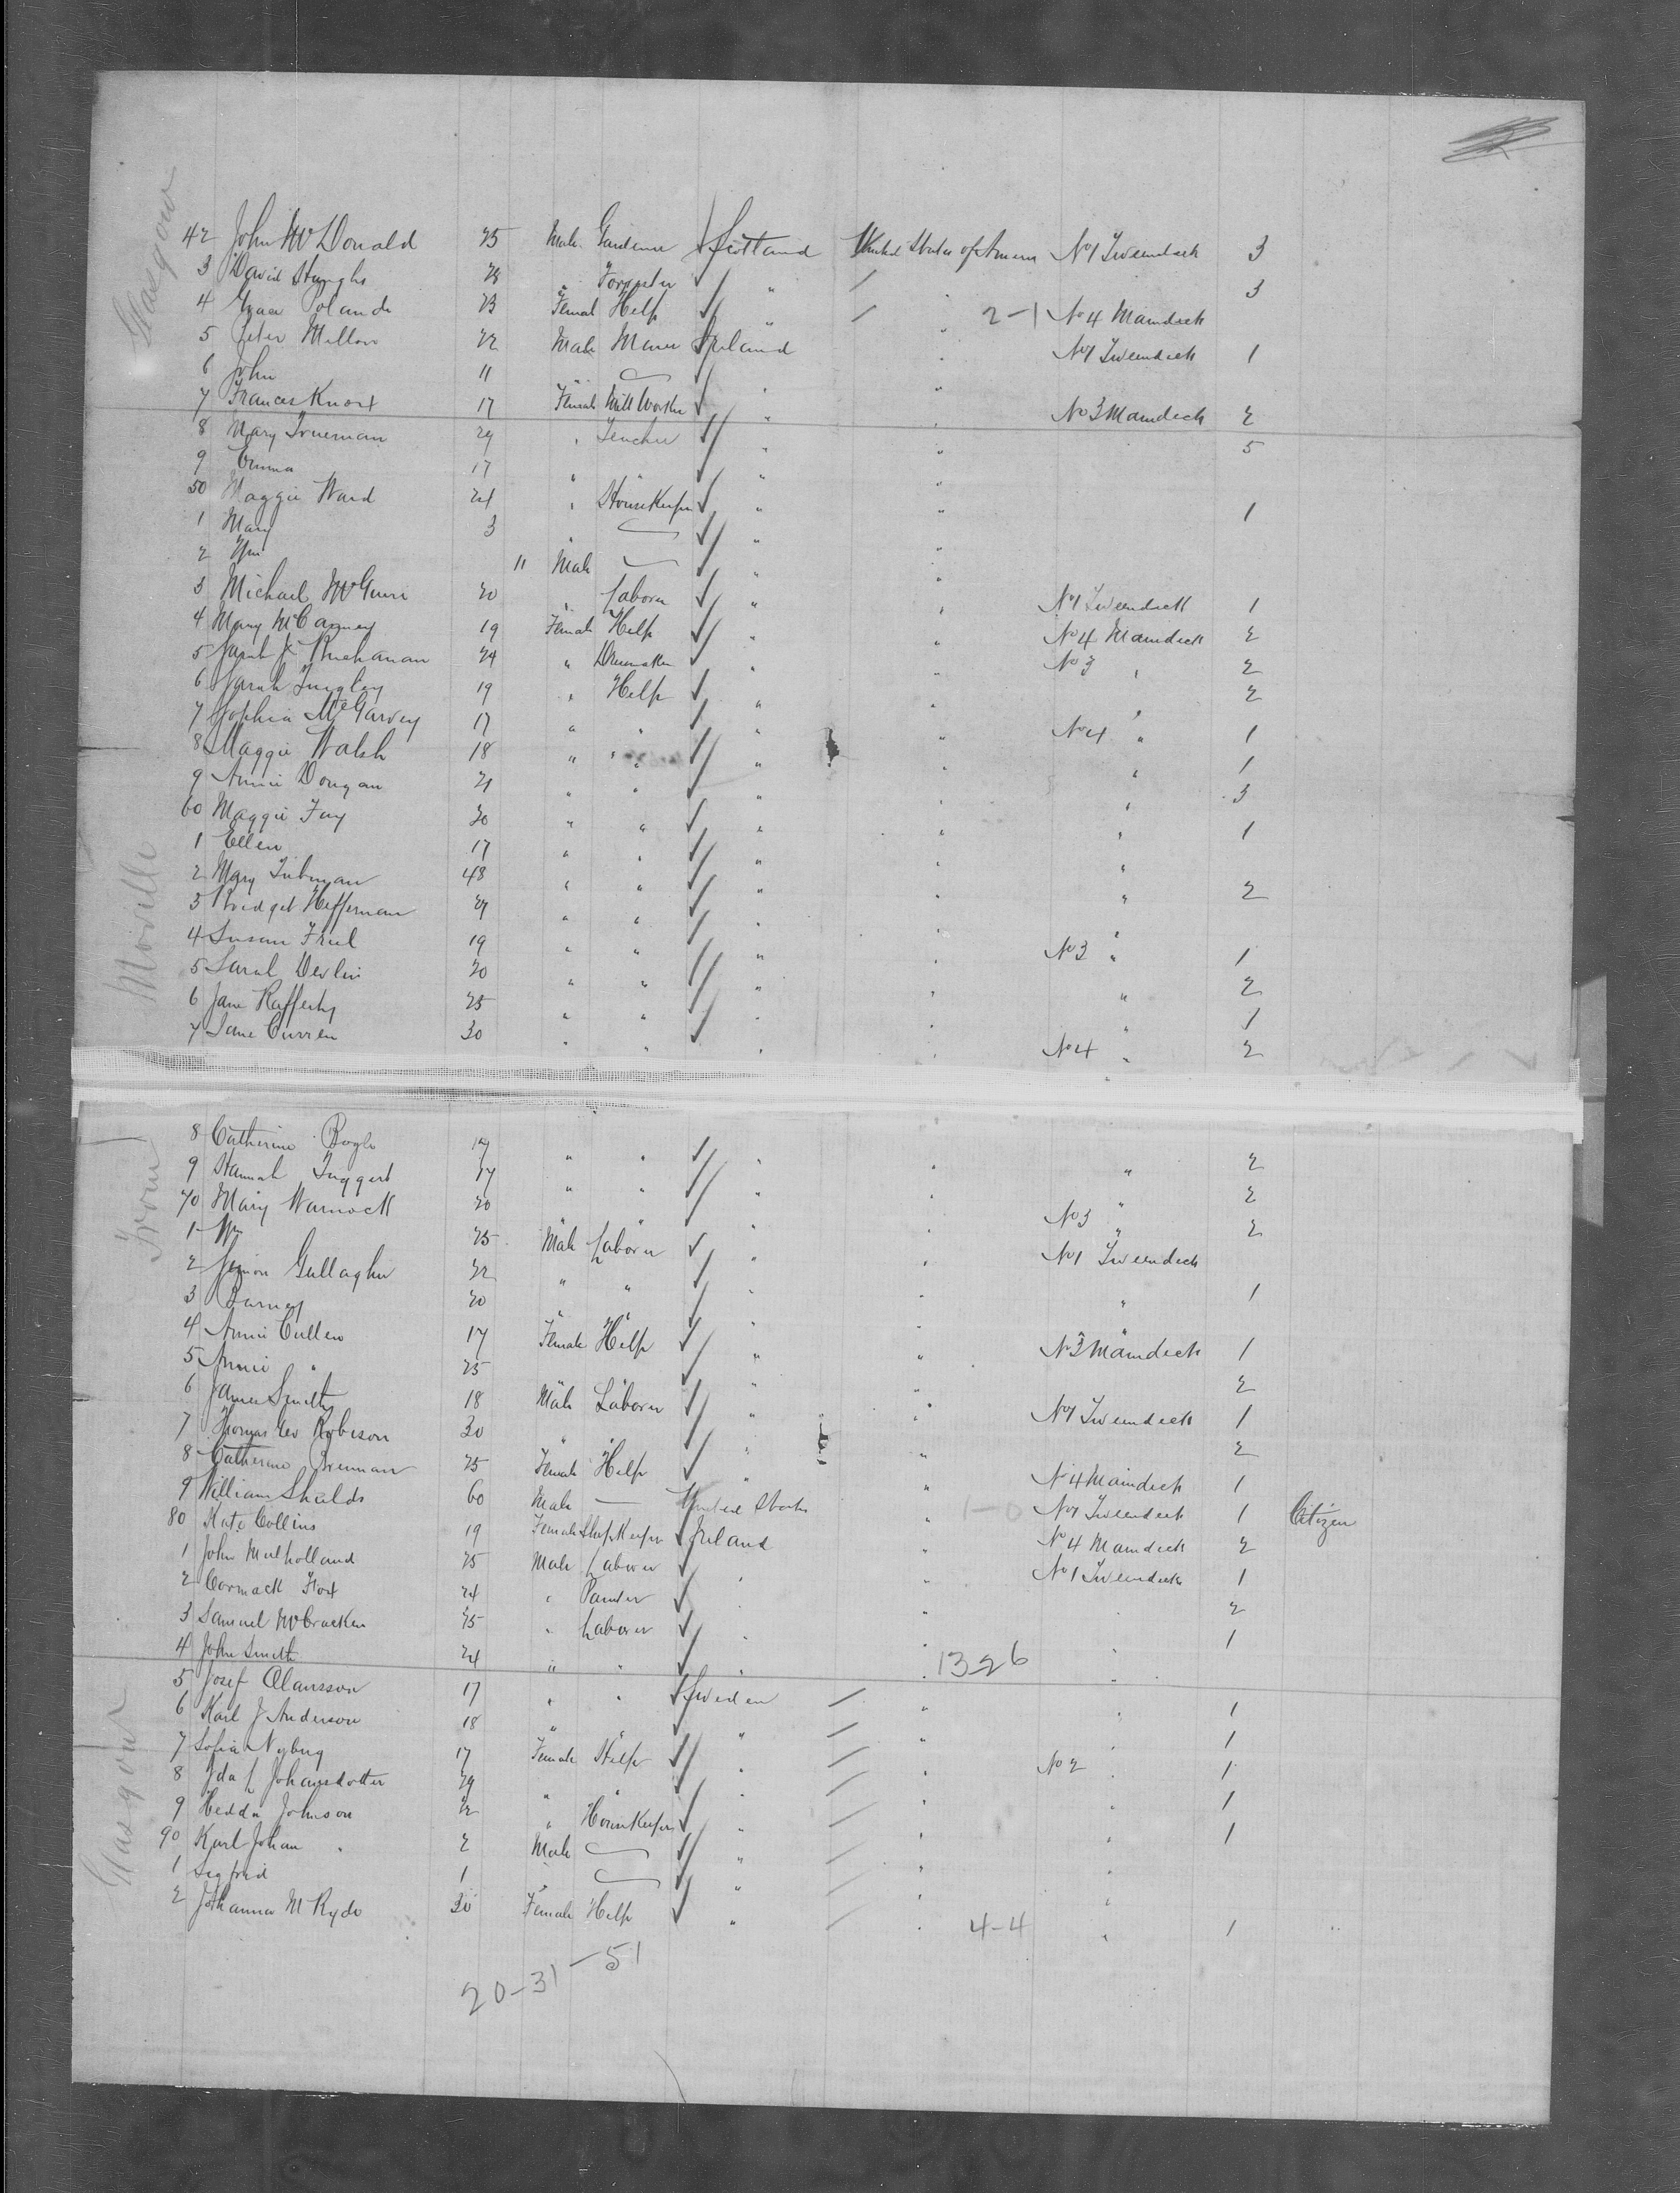 Glasgow
42 John McDonald 25 Male Gardener Scotland United States of America No 1 Tweendeck 3
3 David 23 " Forester " " 3
4 Grace 23 Female Help " " 2-1 No 4 Maindeck
5 Peter Mellon 22 Male Miner Ireland " No 1 Tweendeck 1
6 John 11 " "
7 Frances Knox 17 Female Mill Worker " " No 3 Maindeck 2
8 Mary Trueman 29 " Teacher " " 5
9 Emma 17 " " " "
50 Maggie Ward 24 " House Keeper " " 1
1 Mary 3 " " "
2 Wm 11 Male " "
Moville
3 Michael McGuire 20 " Laborer " " No 1 Tweendeck 1
4 Mary McCarney 19 Female Help " " No 4 Maindeck 2
5 Sarah J Buchanan 24 " Dressmaker " " No 3 " 2
6 Sarah 19 " Help " " " 2
7 Sophia McGarvey 17 " " " " No 4 " 1
8 Maggie Walsh 18 " " " " " 1
9 Annie Dougan 21 " " " " " 3
60 Maggie Fay 20 " " " " " 1
1 Ellen 17 " " " " "
2 Mary 48 " " " " " 2
3 Bridget Heffernan 29 " " " " "
4 Susan Friel 19 " " " " No 3 " 1
5 Sarah Devlin 20 " " " " " 2
6 Jane Rafferty 25 " " " " " 1
7 Jane Curren 30 " " " " No 4 " 2
From
8 Catherine Bogle 19 " " " " " 2
9 Hannah Taggert 17 " " " " " 2
70 Mary Warnock 20 " " " " No 3 " 2
1 Wm 25 Male Laborer " " No 1 Tweendeck
2 Gallagher 22 " " " " " 1
3 Barney 20 " " " " "
4 Annie Cullen 17 Female Help " " No 3 Maindeck 1
5 Annie " 25 " " " " 2
6 James Smith 18 Male Laborer " " No 1 Tweendeck 1
7 Thomas Geo Robison 30 " " " " 2
8 Catherine Brennan 25 Female Help " " No 4 Maindeck 1
9 William Shields 60 Male — United States " 1-0 No 1 Tweendeck 1 Citizen
80 Kate Collins 19 Female Shop Keeper Ireland " No 4 Maindeck 2
1 John Mulholland 25 Male Laborer " " No 1 Tweendeck 1
2 Cormack Fox 24 " Painter " " " 2
3 Samuel McCracken 25 " Laborer " " " 1
4 John Smith 24 " " " " 13-26 "
Glasgow
5 Josef Olausson 17 " " Sweden " " 1
6 Karl J Anderson 18 " " " " " 1
7 Sofia Nyberg 17 Female Help " " No 2 " 1
8 Ida L Johansdotter 29 " " " " " 1
9 Hedda Johnson 22 " House Keeper " " " 1
90 Karl Johan " 2 Male " " "
1 Sigfrid 1 " " " "
2 Johanna M Ryde 30 Female Help " " 4-4 " 1
20-31-51